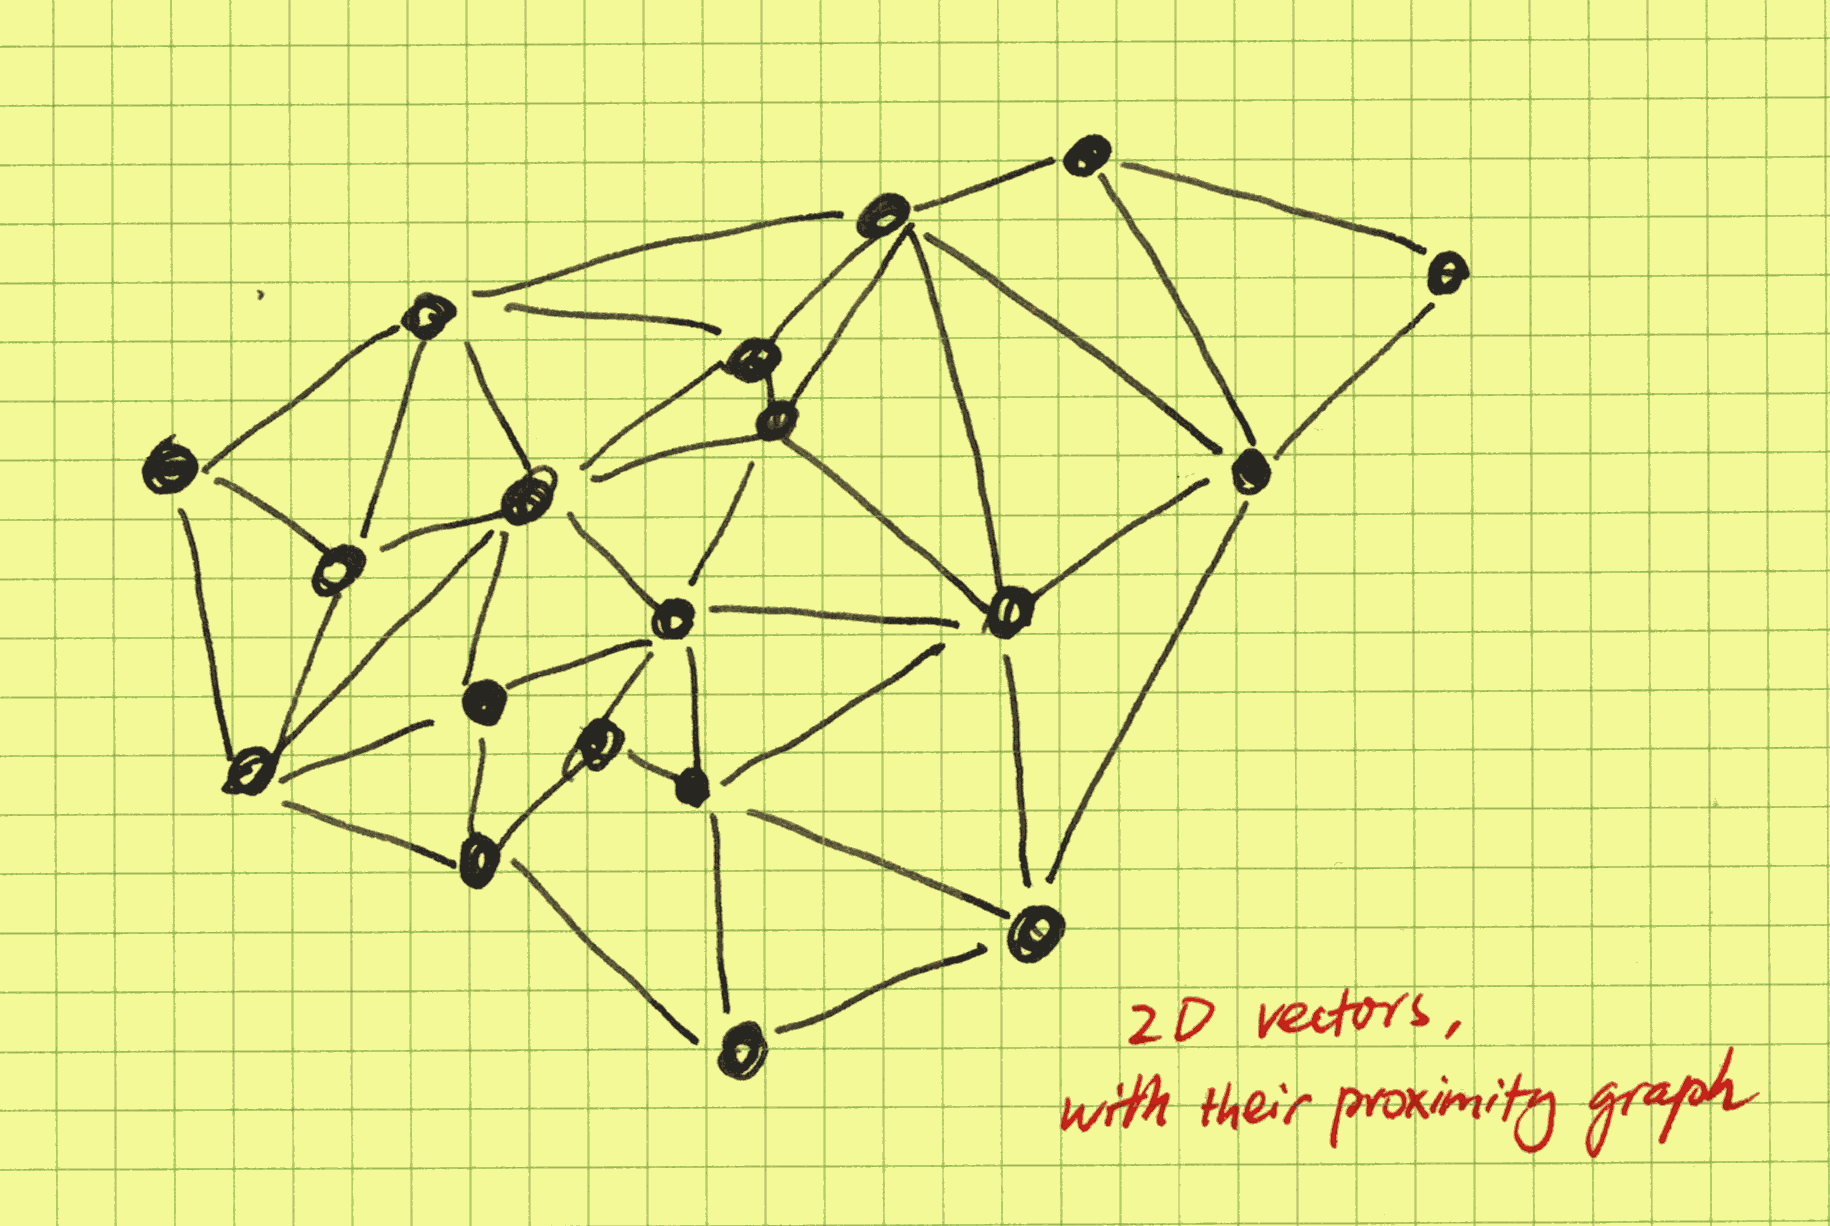 2D vectors,
with their proximity graph